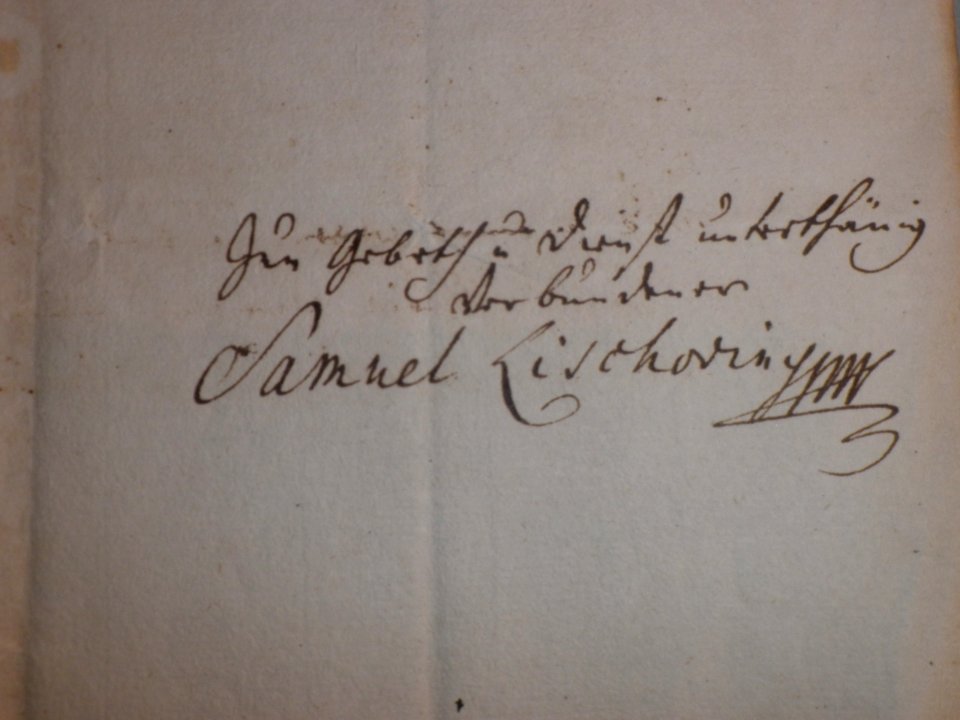 Zu Gebeth u Dienst unterthänig
Verbundener
Samuel Lischovin